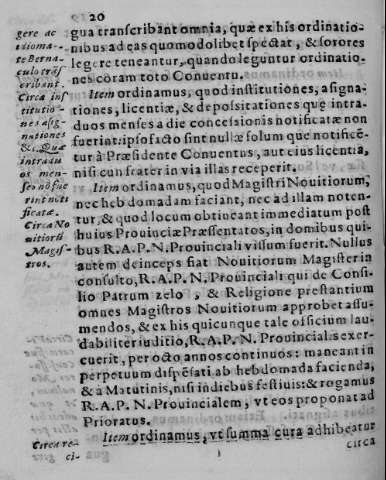 20
gere ac
idioma-
te Berna-
culo trãs
cribant.
Circa ins
titutio-
nes asig-
nationes
&c. Quæ
intra du
os men-
ses nõ fue
rint noti
ficatæ.
Circa No
uitiorũ
Magis-
tros.
gua transcribant omnia, quæ ex his ordinatio-
nibus ad eas quomodolibet spectãt, & sorores
legere teneantur, quando leguntur ordinatio-
nes coram toto Conuentu.
Item ordinamus, quod institutiones, asigna-
tiones, licentiæ, & depositationes quę intra-
duos menses a die concessionis notificatæ non
fuerint: ipso facto sint nullæ solum que notificẽ-
tur à Præsidente Conuentus, aut eius licentia,
nisi cum frater in via illas receperit.
Item ordinamus, quod Magistri Nouitiorum,
nec hebdomadam faciant, nec ad illam noten-
tur, & quod locum obtineant immediatum post
huius Prouinciæ Præsentatos, in domibus qui-
bus R. A. P. N. Prouinciali vissum fuerit. Nullus
autem deinceps fiat Nouitiorum Magister in
consulto, R. A. P. N. Prouinciali qui de Consi-
lio Patrum zelo, & Religione prestantium
omnes Magistros Nouitiorum approbet assu-
mendos, & ex his quicunque tale officium lau-
dabiliter iuditio, R. A. P. N. Prouincialis exer-
cuerit, per octo annos continuos: maneant in
perpetuum dispẽsati ab hebdomada facienda,
& à Matutinis, nisi in diebus festiuis: & rogamus
R. A. P. N. Prouincialem, vt eos proponat ad
Prioratus.
Item ordinamus, vt summa cura adhibeatur
Circa re-
ci-
circa